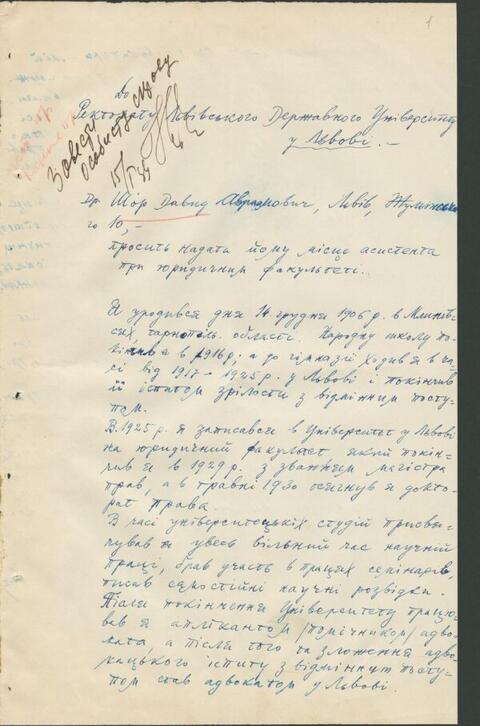 1
До
Ректорату Львівського Державного Університету
у Львові. —
Завести
особисту справу
Др Шор Давид Авраамович, Львів,
го 10, —
просить надати йому місце асистента
при юридичним факультеті.
Я уродився дня 14 грудня 1906 р. в
сях, тарнопол. области. Народну школу по-
кінчив а в 1916 р; а до гімназії ходив я в ча-
сі від 1917 – 1925 р. у Львові і покінчив
її іспитом зрілости з відмінним посту-
пом.
В 1925 р. я записався в Університет у Львові
на юридичний факультет який покін-
чив я в 1929 р. з званням магістра
прав, а в травні 1930 осягнув я докто-
рат права.
В часі університецьких студій присвя-
чував я увесь вільний час научній
праці, брав участь в працях семінарів,
писав самостійні научні розвідки.
Після покінчення Університету працю-
вав я аплікантом /помічником/ адво-
ката, а після того та зложення адво-
кацького іспиту з відмінним посту-
пом став адвокатом у Львові.